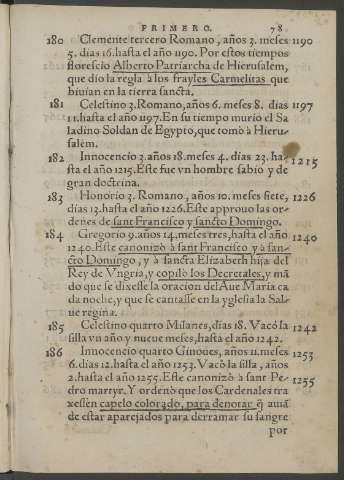 PRIMERO. 78
180 Clemente tercero Romano, años 3. meses 1190
5. dias 16. hasta el año 1190. Por estos tiempos
florescio Alberto Patriarcha de Hierusalem,
que dio la regla à los frayles Carmelitas que
biuian en la tierra sancta.
181 Celestino 3. Romano, años 6. meses 8. dias 1197
11. hasta el año 1197. En su tiempo murio el Sa
ladino Soldan de Egypto, que tomò à Hieru-
salem.
182 Innocencio 3. años 18. meses 4. dias 23. ha- 1215
sta el año 1215. Este fue vn hombre sabio y de
gran doctrina.
183 Honorio 3. Romano, años 10. meses siete, 1226
dias 13. hasta el año 1226. Este approuo las or-
denes de sant Francisco y sancto Domingo.
184 Gregorio 9. años 14. meses tres, hasta el año 1240
1240. Este canonizò à sant Francisco y à san-
cto Domingo, y à sancta Elizabeth hija del
Rey de Vngria, y copilò los Decretales, y mã
do que se dixesse la oracion del Aue Maria ca
da noche, y que se cantasse en la yglesia la Sal-
ue regina.
185 Celestino quarto Milanes, dias 18. Vacò la 1242
silla vn año y nueue meses, hasta el año 1242.
186 Innocencio quarto Ginoues, años 11. meses 1253
6. dias 12. hasta el año 1253. Vacò la silla, años
2. hasta el año 1255. Este canonizò à sant Pe- 1255
dro martyr. Y ordenò que los Cardenales tra
xessen capelo colorado, para denotar q̃ auiã
de estar aparejados para derramar su sangre
por